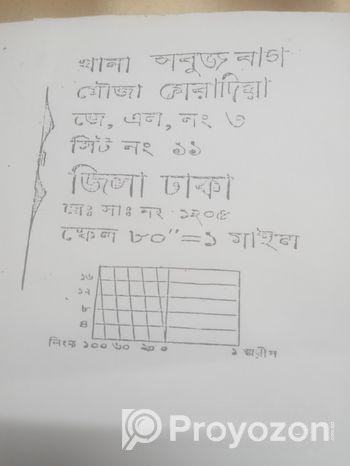 থানা সবুজ বাগ
মৌজা মেরাদিয়া
জে, এল, নং ৩
সিট নং ১১
জিলা ঢাকা
রেঃ সাঃ নং ১২০৫
স্কেল ৮০"=১ মাইল
১৬
১২
৮
৪
লিংক ১০০ ৬০ ২০ ০ ১ জরীপ
Proyozon